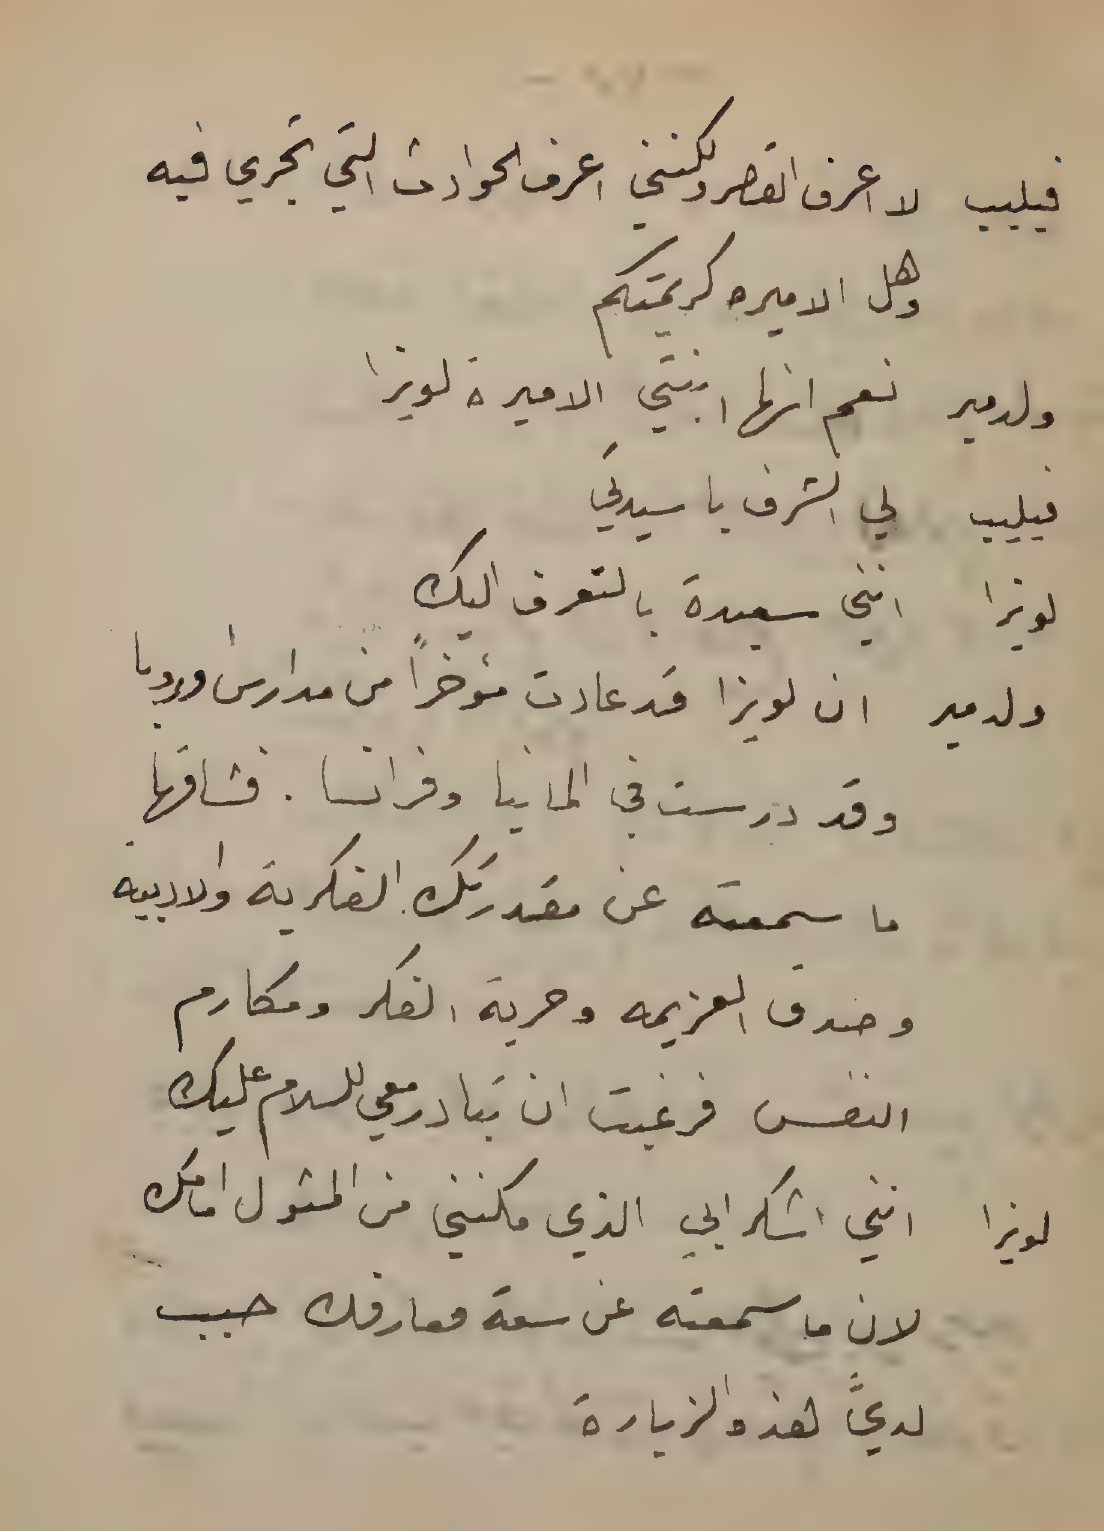 فيليب لا اعرف القصر ولكنني اعرف الحوادث التي تجري فيه
وهل الاميره كريمتكم
ولدمير نعم انها ابنتي الاميرة لويزا
فيليب لي الشرف يا سيدتي
لويزا انني سعيدة بالتعرف اليك
ولدمير ان لويزا قد عادت مؤخراً من مدارس اوروبا
وقد درست في المانيا وفرانسا . فشاقها
ما سمعته عن مقدرتك الفكرية والادبية
وصدق العزيمه وحرية الفكر ومكارم
النفس فرغبت ان تبادر معي للسلام عليك
لويزا انني اشكر ابي الذي مكنني من المثول امامك
لان ما سمعته عن سعة معارفك حبب
لديَّ هذه الزيارة